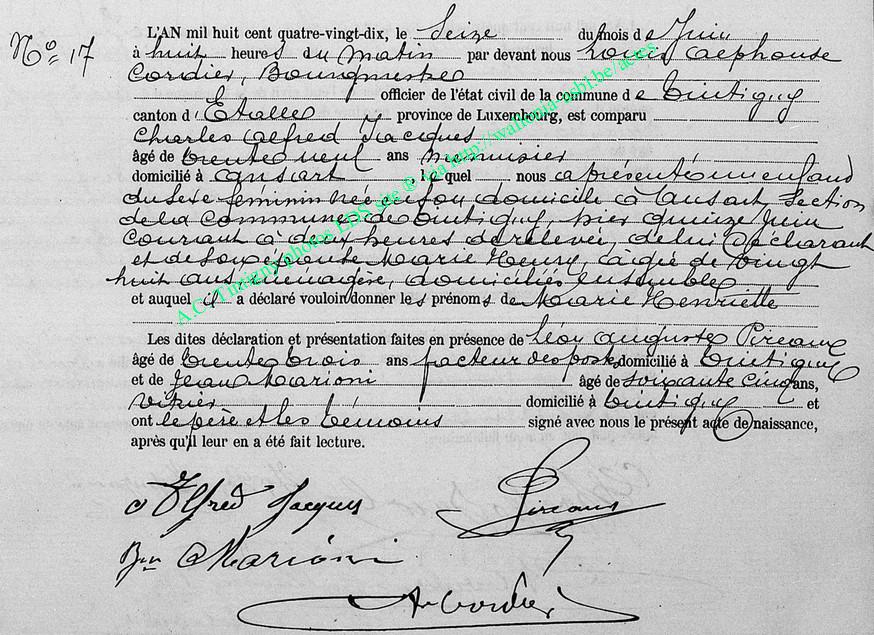 L'AN mil huit cent quatre-vingt-dix, le Seize du mois de Juin
N° 17 à huit heures du matin par devant nous Louis Alphonse
Cordier, Bourgmestre
officier de l'état civil de la commune de Tintigny
canton d'Etalle province de Luxembourg, est comparu
Charles Alfred Jacques
âgé de trente neuf ans menuisier
domicilié à Ansart, lequel nous a présenté un enfant
du sexe féminin née en son domicile à Ansart, Section
de la commune de Tintigny, hier quinze Juin
courant à deux heures de relevée, de lui déclarant
et de son épouse Marie Henry, âgée de vingt
huit ans, ménagère, domiciliés ensemble
et auquel il a déclaré vouloir donner les prénoms de Marie Henriette
Les dites déclaration et présentation faites en présence de Léon Auguste Pireaux
âgé de trente trois ans facteur des postes, domicilié à Tintigny
et de Jean Marioni âgé de soixante cinq ans,
vitrier domicilié à Tintigny et
ont le père et les témoins signé avec nous le présent acte de naissance,
après qu'il leur en a été fait lecture.
Alfred Jacques Pireaux
Marioni
A. Cordier
A.C. Tintigny photos LDS site ® via http://wallonia-asbl.be/actes